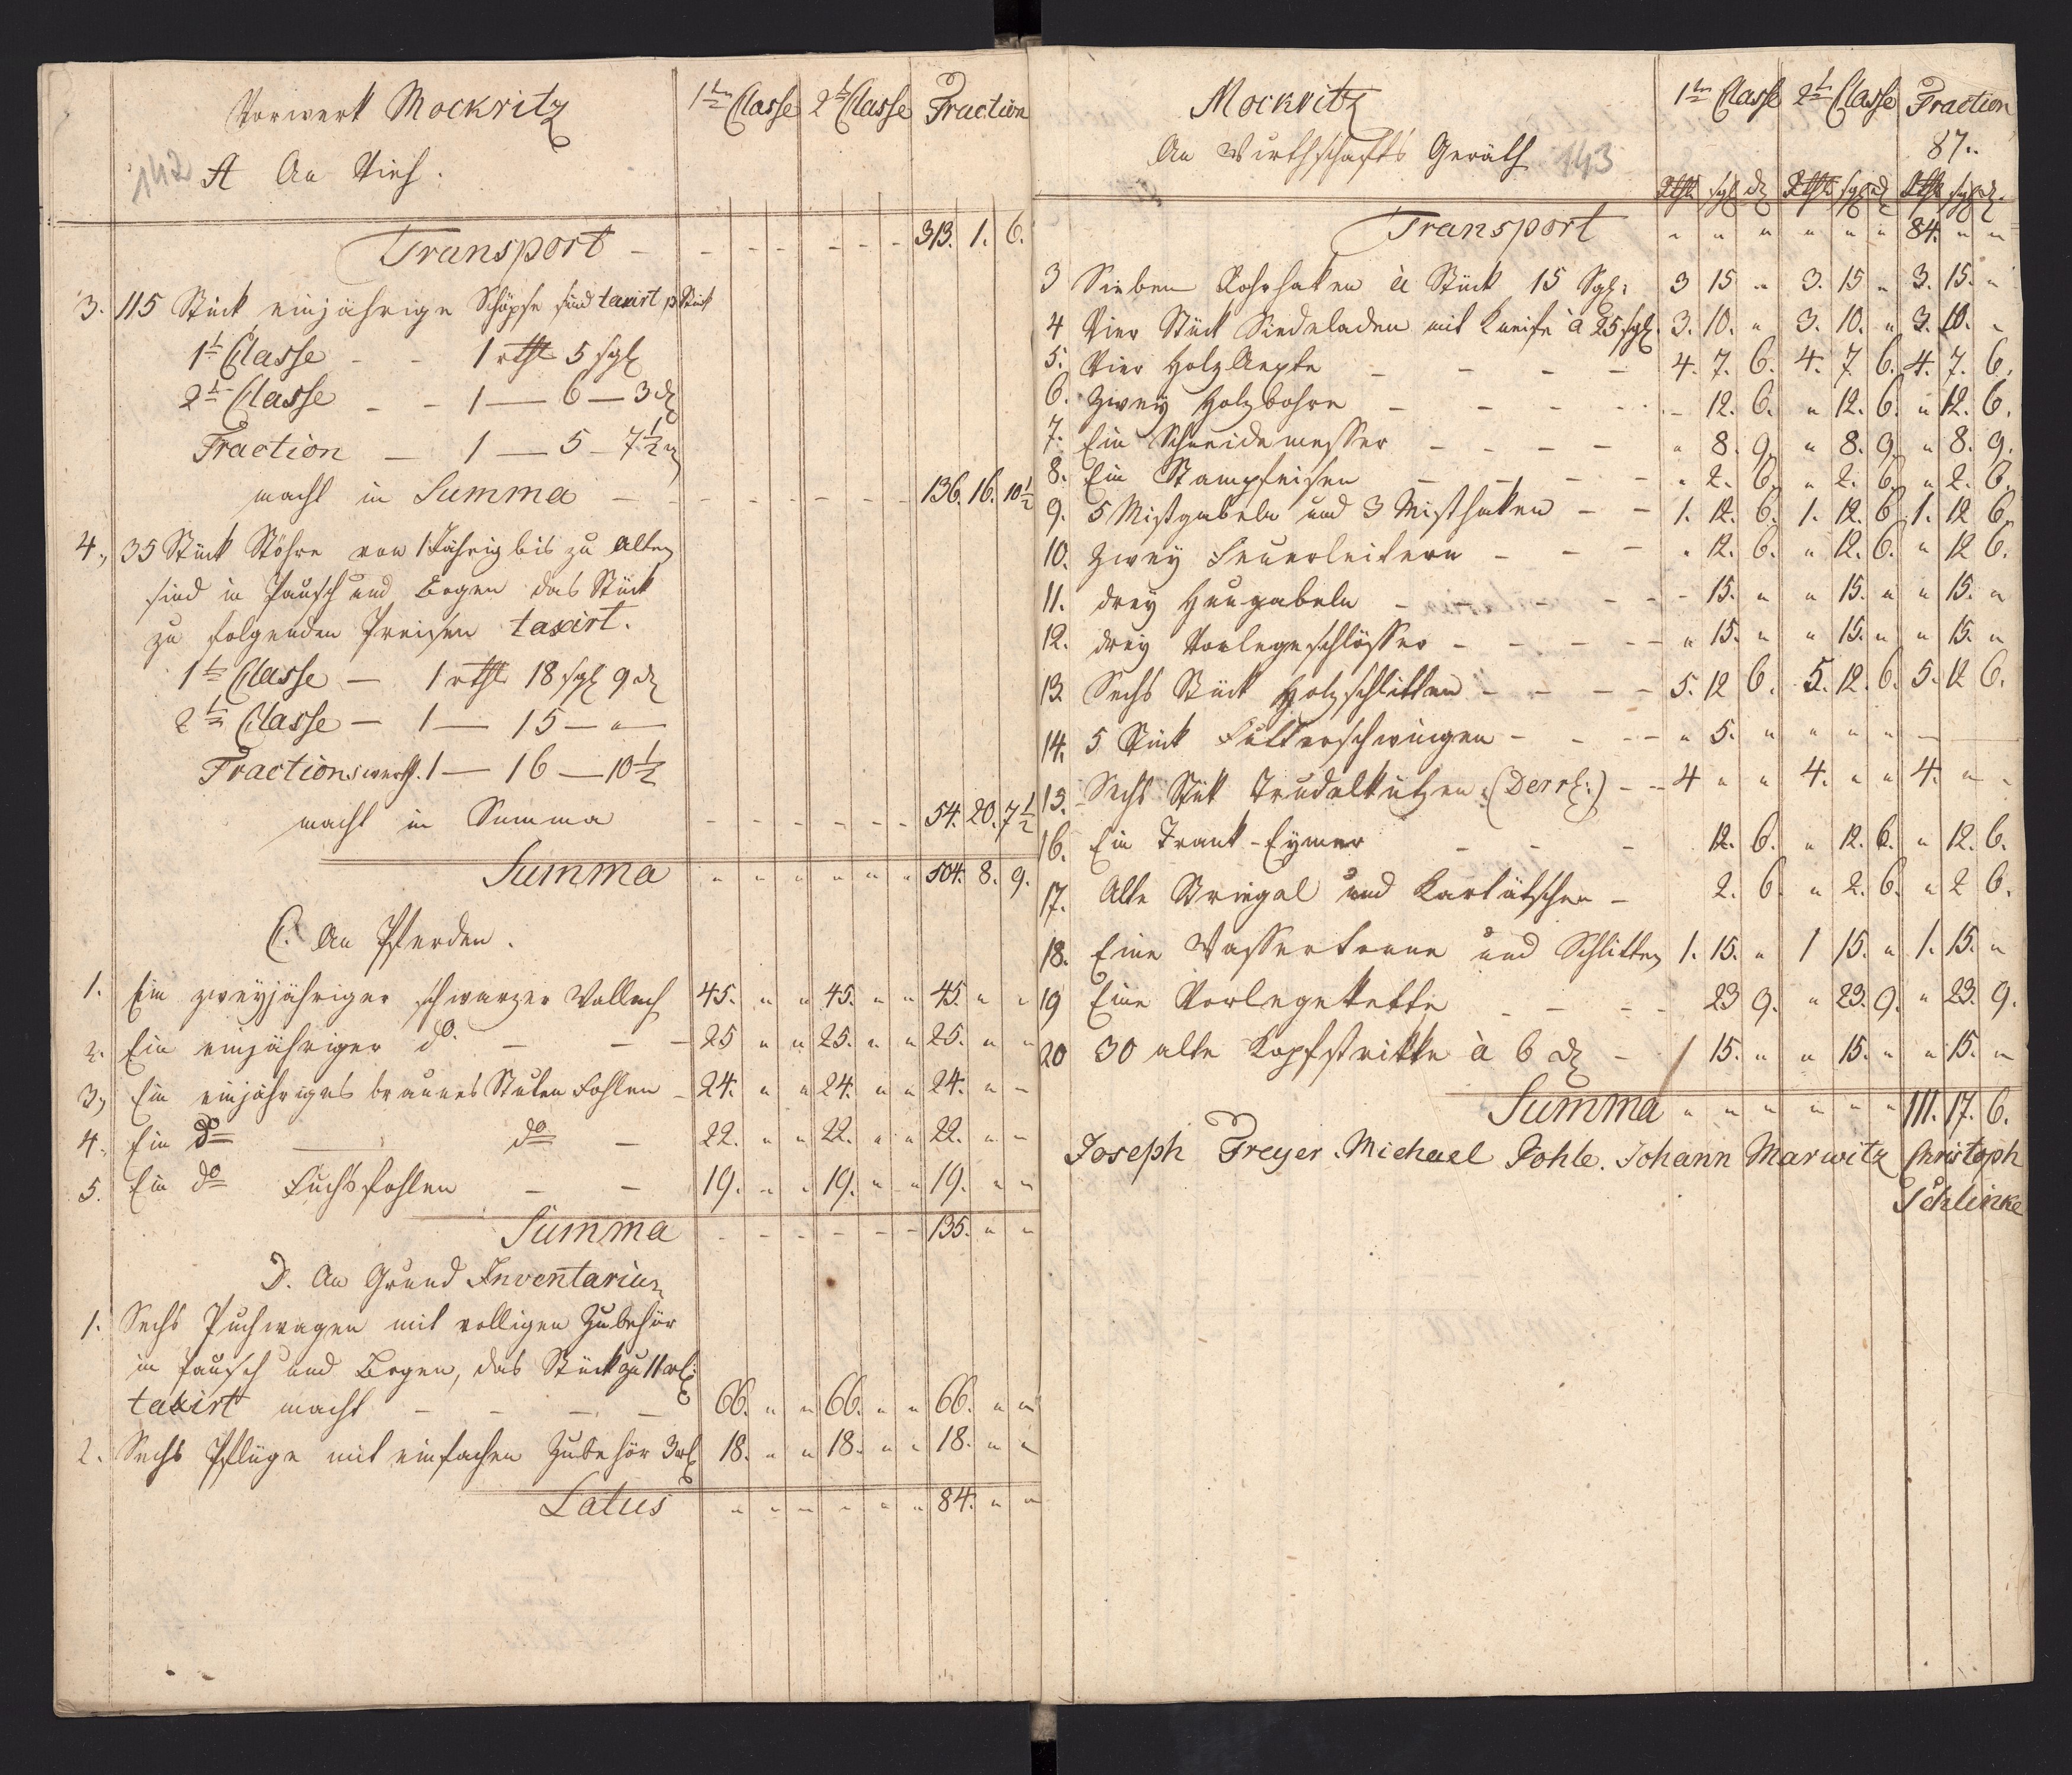 Vorwerk Mockritz 1te Classe 2te Classe Fraction
142 A An Vieh.
Transport - - - - - - - 313. 1. 6.
3. 115 Stück einjährige Schöpse sind taxirt p Stück
1te Classe - - 1 rthl 5 sgl
2te Classe - - 1 — 6 — 3 d
Fraction — 1 — 5 - 7½ "
macht in Summa - - - - - - - 136. 16. 10½
4., 35 Stück Stöhre von 1 Jährig bis zu alten
sind in Pausch und Bogen das Stück
zu folgenden Preisen taxirt.
1te Classe — 1 rthl 18 sgl 9 d
2te Classe — 1 — 15 — " —
Fractionswerth. 1 — 16 — 10½
macht in Summa - - - - - - 54. 20. 7½
Summa " " " " " " 504. 8. 9.
C. An Pferden.
1. Ein zweyjähriger schwarzer Wallach 45. " " 45. " " 45. " "
2. Ein einjähriger do. - - - 25 " " 25. " " 25. " "
3, Ein einjähriges braunes Stuten Fohlen - 24. " " 24. " " 24. " -
4. Ein do — do - 22. " " 22. " " 22. " -
5. Ein do Fuchsfohlen - - 19. " " 19. " " 19. " "
Summa - - - - - - 135. " "
D. An Grund Inventarium
1. Sechs Puchwagen mit volligen Zubehör
in Pausch und Bogen, das Stück zu 11 rl
taxirt macht - - - - 66. " " 66. " " 66. " "
2. Sechs Pflüge mit einfachen Zubehör 3 rl 18. " " 18. " " 18. " "
Latus " " " " " " 84. " "
Mockritz 1te Classe 2te Classe Fraction
An Wirthschafts Geräth 143 87..
Rthl sgl d Rthl sgl d Rthl sgl d.
Transport " " " " " " 84. " "
3 Sieben Rohrhaken à Stück 15 Sgl: 3 15 " 3. 15 " 3. 15. "
4 Vier Stück Siedeladen mit Kneife à 25 sgl. 3. 10. " 3. 10. " 3. 10. "
5. Vier Holz Aexte - - - - 4. 7. 6. 4. 7. 6. 4. 7. 6.
6. Zwey Holzbohre - - - - - 12. 6. " 12. 6. " 12. 6.
7. Ein Schneidemesser - - - - " 8. 9. " 8. 9. " 8. 9.
8. Ein Stampfeisen - - - - " 2. 6. " 2. 6. " 2. 6.
9. 5 Mistgabeln und 3 Misthaken - - 1. 12. 6. 1. 12. 6. 1. 12 6.
10. Zwey Feuerleitern - - - " 12. 6. " 12. 6. " 12 6.
11. drey Heugabeln - - - - - - 15. " " 15. " " 15. "
12. drey Vorlegeschlösser - - - - - " 15. " " 15. " " 15. "
13 Sechs Stück Holzschlitten - - - - 5. 12 6. 5. 12. 6. 5. 12 6.
14. 5 Stück Futterschwingen - - - - " 5. " " " " —
15. Sechs Stük Trudelkützen (Derrl:) - - 4 " " 4. " " 4. " -
16. Ein Trank-Eymer - - - 12. 6. " 12. 6. " 12. 6.
17. Alte Striegel und Kartätschen - 2. 6. " 2. 6. " 2 6.
18. Eine Wassertonne und Schlitten 1. 15. " 1 15. " 1. 15. "
19 Eine Vorlegekette - - - - 23 9. " 23. 9. " 23. 9.
20 30 alte Kopfstrikke à 6 d - / 15. " " 15. " " 15. "
Summa " " " " " " 111. 17. 6.
Joseph Freyer. Michael Pohle. Johann Marwitz Christoph
Schlinke